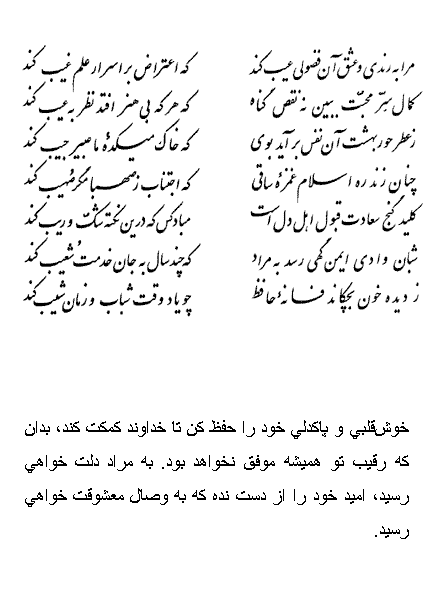 مرا به رندی و عشق آن فضولی عیب کند که اعتراض بر اسرار علم غیب کند
کمال سر محبّت ببین نه نقص گناه که هر که بی هنر افتد نظر به عیب کند
ز عطر حور بهشت آن نفس برآید بوی که خاک میکدهٔ ما عبیر جیب کند
چنان زند ره اسلام غمزهٔ ساقی که اجتناب ز صهبا مگر صُهیب کند
کلید گنج سعادت قبول اهل دل است مباد کس که درین نکته شکّ و ریب کند
شبان وادی ایمن گهی رسد به مراد که چند سال به جان خدمت شُعیب کند
ز دیده خون بچکاند فسانهٔ حافظ چو یاد وقت شباب و زمان شیب کند
خوش‌قلبي و پاکدلي خود را حفظ کن تا خداوند کمکت کند، بدان
که رقیب تو همیشه موفق نخواهد بود. به مراد دلت خواهي
رسید، امید خود را از دست نده که به وصال معشوقت خواهي
رسید.